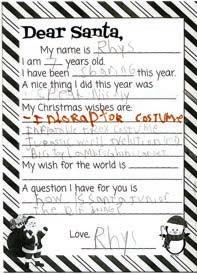 Dear Santa,
My name is Rhys
I am 7 years old.
I have been this year.
A nice thing I did this year was
speak nicely
My Christmas wishes are:
-INDORAPTOR COSTUME
INFLATABLE T REX COSTUME
JURASSIC WORLD EVOLUTION
My wish for the world is
A question I have for you is
how is santa junior
Love, Rhys